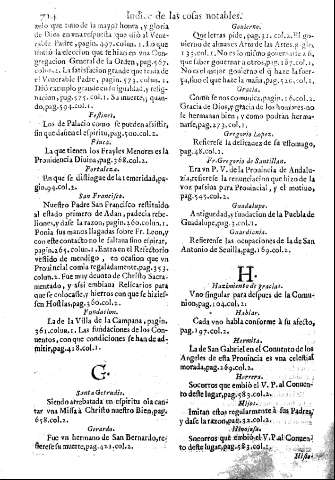 714 Indice de las cosas notables.
zelo que tuvo de la mayor honra, y gloria
de Dios en una respuesta que dió al Vene-
rable Padre, pagin. 497. colum. 1. Lo que
sintió la eleccion que se hizo en una Con-
gregacion General de la Orden, pag. 467.
colun. 2. La satisfacion grande que tenia de
el Venerable Padre, pagin. 473. colun. 1.
Dió exemplo grande en su igualdad, y resig-
nacion, pag. 525. col. 1. Su muerte, y quan-
do, pag. 594. col. 1.
Festines.
Los de Palacio como se pueden assistir,
sin que dañen el espiritu, pag. 500. col. 2.
Finca.
La que tienen los Frayles Menores es la
Providencia Divina, pag. 768. col. 2.
Fortaleza.
En que se distingue de la temeridad, pa-
gin. 94. col. 2.
San Francisco.
Nuestro Padre San Francisco restituido
al estado primero de Adan, padecia rebe-
liones, y dase la razon, pagin. 260. colun. 1.
Ponia sus manos llagadas sobre Fr. Leon, y
con este contacto no le faltava sino espirar,
pagin. 265. colun. 2. Entra en el Refectorio
vestido de mendigo, en ocasion que un
Provincial comia regaladamente, pag. 353.
colun. 2. Fue muy devoto de Christo Sacra-
mentado, y assi embiava Relicarios para
que se colocasse, y hierros con que se hizies-
sen Hostias, pag. 360. col. 2.
Fundacion.
La de la Villa de la Campana, pagin.
361. colun. 1. Las fundaciones de los Con-
ventos, con que condiciones se han de ad-
mitir, pag. 428. col. 1.
G.
Santa Getrudis.
Siendo arrebatada en espiritu ola can-
tar una Missa à Christo nuestro Bien, pag.
658. col. 2.
Gerardo.
Fue un hermano de San Bernardo, re-
fierese su muerte, pag. 421. col. 2.
Govierno.
Que letras pide, pag. 32. col. 2. El go-
vierno de almas es Arte de las Artes, pagin.
135. col. 1. No es lo mismo governarse à si,
que labar governar à otros, pag. 187. col. 1.
No es el mejor governo el q̃ haze la fuer-
ça, sino el que haze la maña, pag. 520. col. 2.
Gracia.
Como se nos comunica, pagin. 16. col. 2.
Gracia de Dios, y gracia de los hombres no
se hermanan bien, y como podran herma-
narse, pag. 273. col. 1.
Gregorio Lopez.
Refierese la delicadeza de su estomago,
pag. 48. col. 2.
Fr. Gregorio de Santillan.
Era un P. V. de la Provincia de Andalu-
zia, refierese la renunciacion que hizo de la
voz passiva para Provincial, y el motivo,
pag. 545. col. 2.
Guadalupe.
Antiguedad, y fundacion de la Puebla de
Guadalupe, pag. 3. col. 1.
Guardiania.
Refierense las ocupaciones de la de San
Antonio de Sevilla, pag. 169. col. 2.
H.
Hazimiento de gracias.
Uno singular para despues de la Comu-
nion, pag. 104. col. 2.
Hablar.
Cada uno habla conforme à su afecto,
pag. 197. col. 2.
Hermita.
La de San Gabriel en el Convento de los
Angeles de esta Provincia es una celestial
morada, pag. 269. col. 2.
Herrera.
Socorros que embió el V. P. al Conven-
to deste lugar, pag. 583. col. 2.
Hijos.
Imitan estos regularmente à sus Padres,
y dase la razon, pag. 32. col. 2.
Hinojosa.
Socorros que embió el V. P. al Conven-
to deste lugar, pag. 583. col. 2.